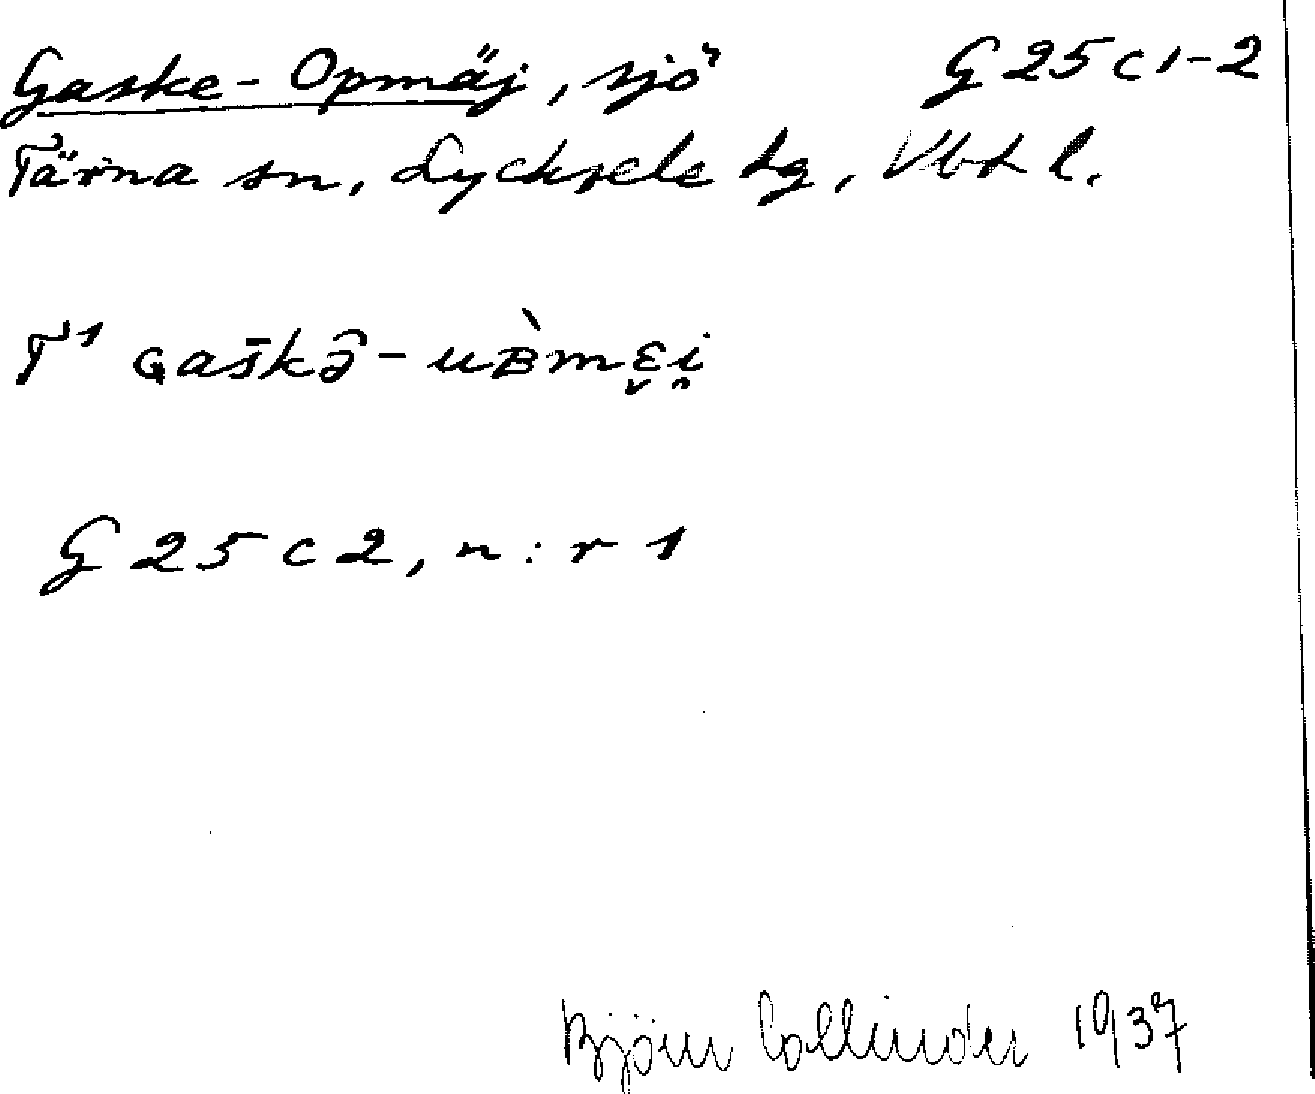 Gaske-Opmäj, sjö G 25 c 1-2
Tärna sn, Lycksele lg, Vbt l.
T¹ ɢas̄kə̑-uʙ̀mɛ̬i̯
G 25 c 2, n:r 1
Björn Collinder 1937